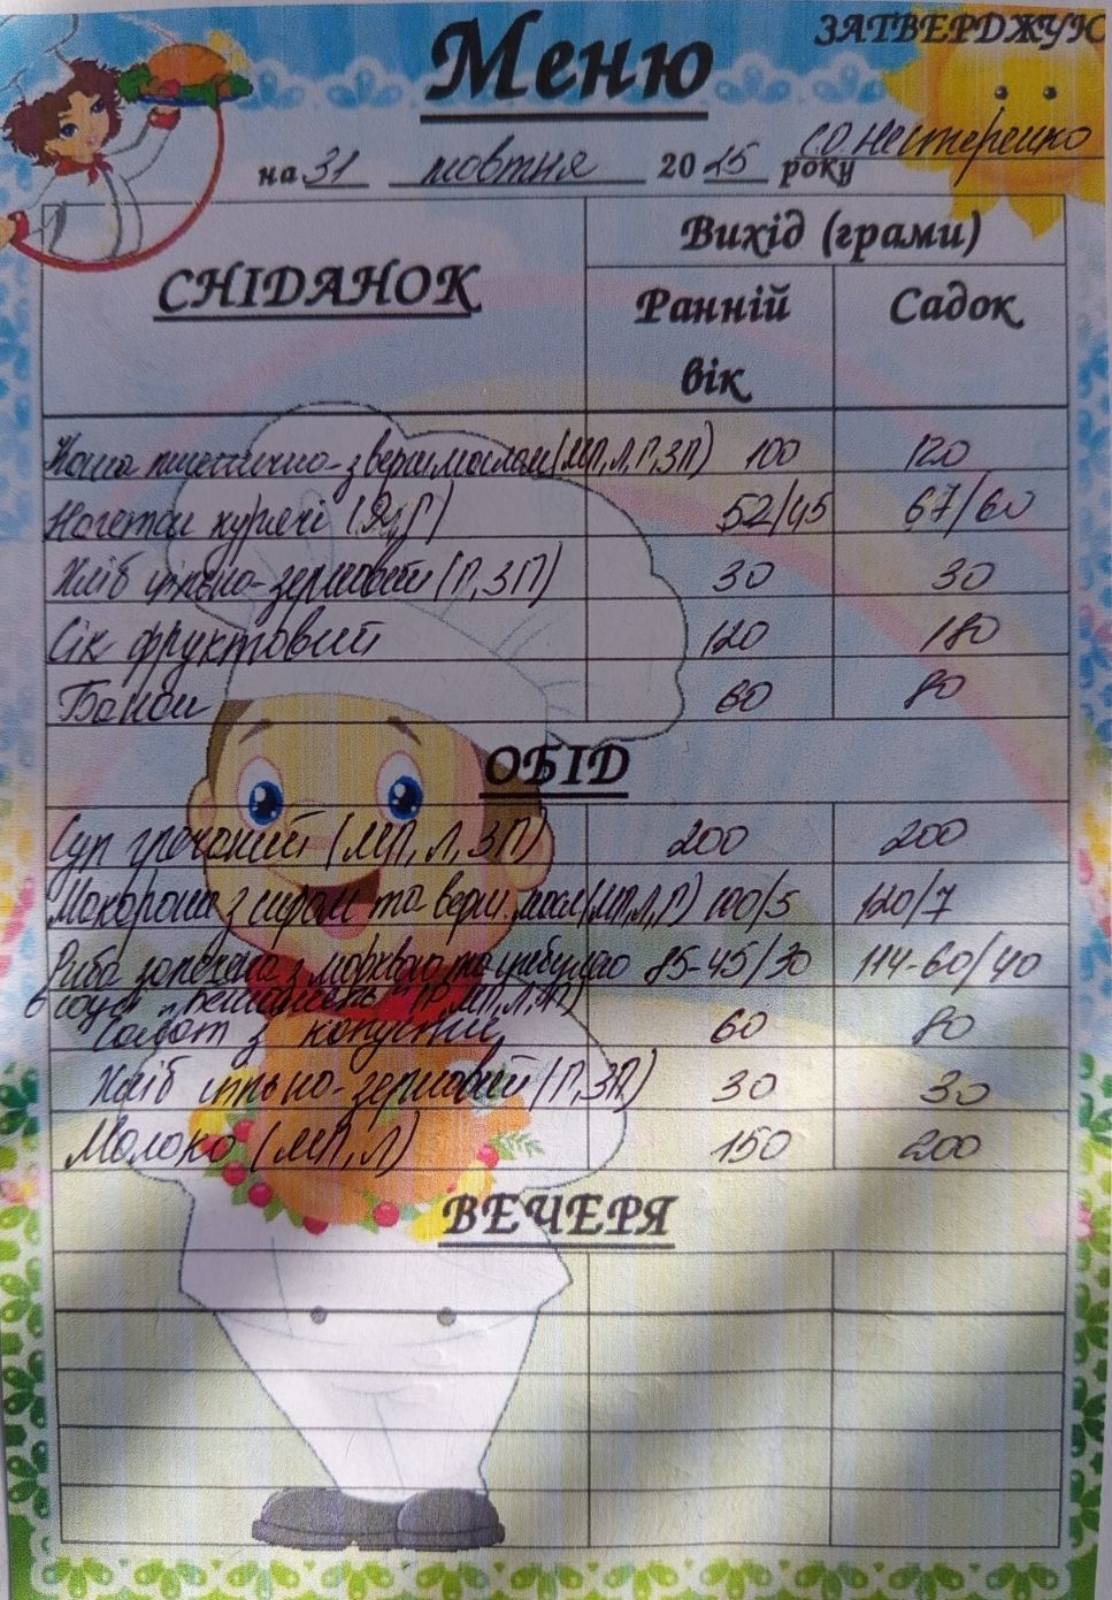 ЗАТВЕРДЖУЮ
Меню
С.О. Нестеренко
на 31 жовтня 2025 року
СНІДАНОК
Вихід (грами)
Ранній вік
Садок
Каша пшенична з верш.маслом (МП, Л, Г, ЗП) 100 120
Нагетси курячі (Я, Г) 52/45 67/60
Хліб цільно-зерновий (Г, ЗП) 30 30
Сік фруктовий 120 180
Банан 60 80
ОБІД
Суп гречаний (МП, Л, ЗП) 200 200
Макарони з сиром та верш. масл (МП, Л, Г) 100/5 120/7
Риба запечена з морквою та цибулею 85-45/30 114-60/40
в соусі (Р, МП, Л, ЗП)
Салат з капусти 60 80
Хліб цільно-зерновий (Г, ЗП) 30 30
Молоко (МП, Л) 150 200
ВЕЧЕРЯ